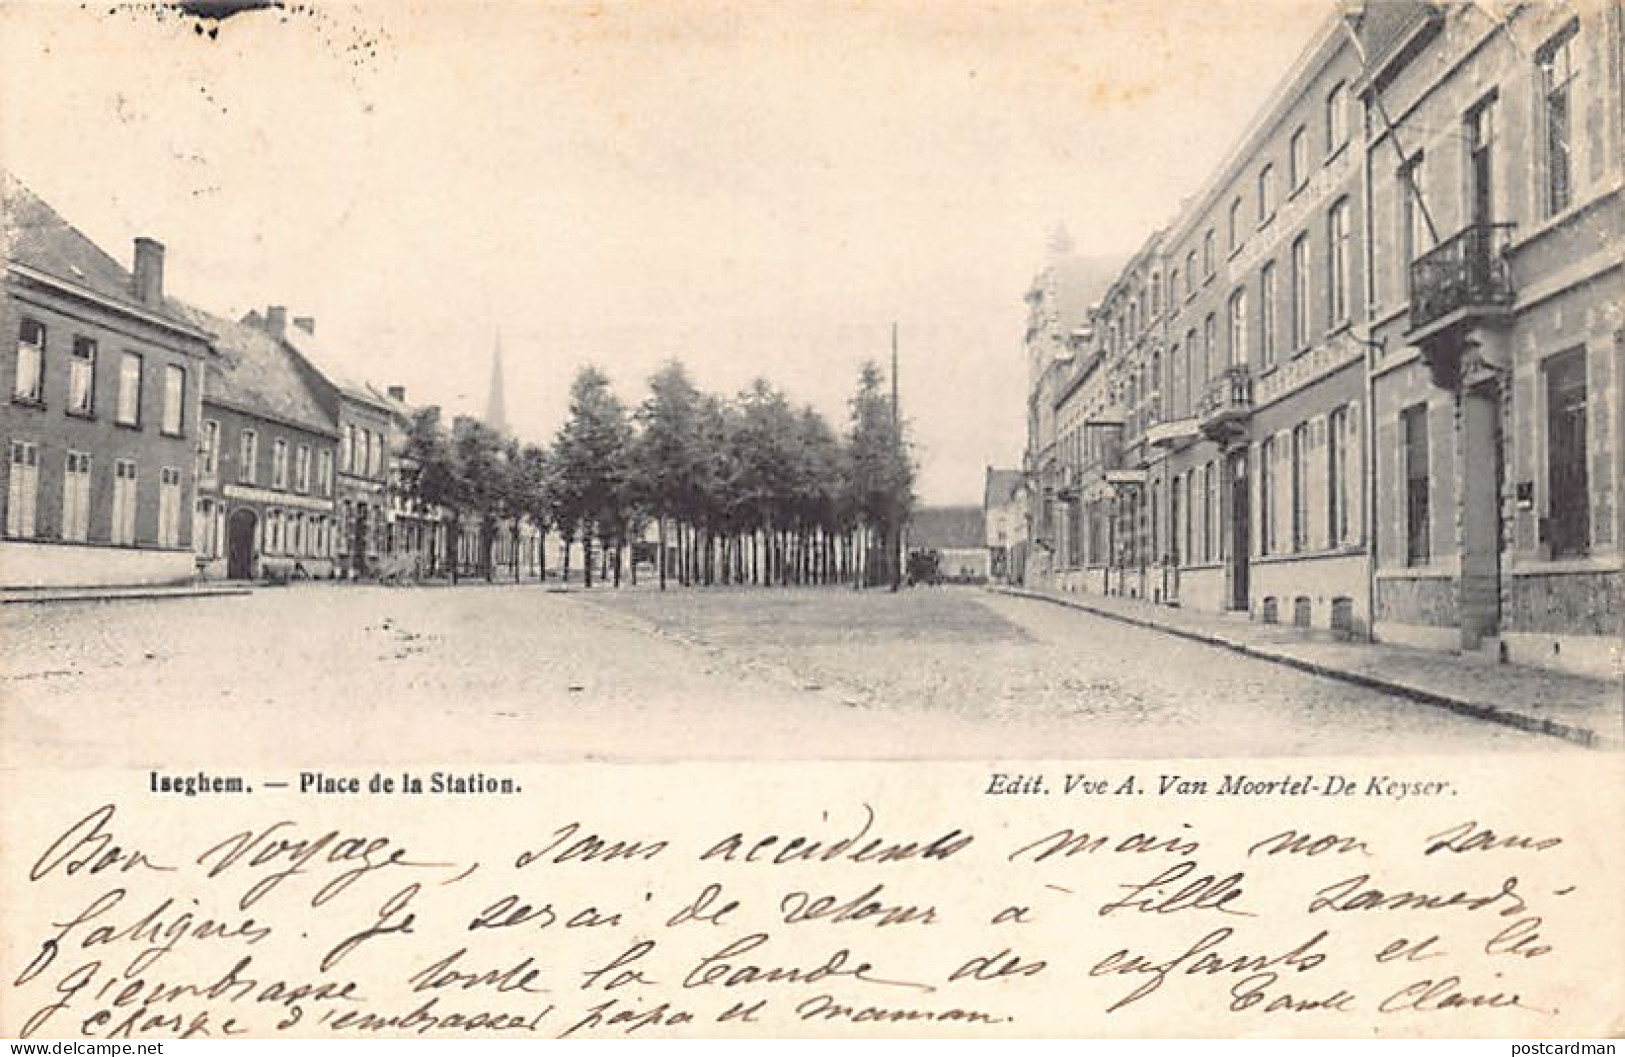 Iseghem. — Place de la Station.
Edit. Vve A. Van Moortel-De Keyser.
Bon Voyage, sans accidents mais non sans
fatigues. Je serai de retour à Lille samedi
J'embrasse toute la bande des enfants et les
charge d'embrasser papa et maman. Tante Claire
postcardman
www.delcampe.net